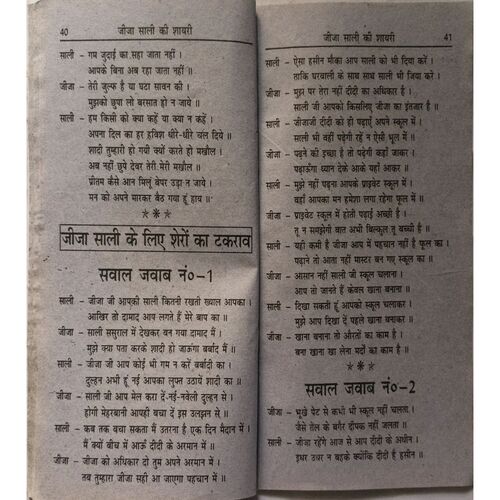 40 जीजा साली की शायरी
साली – गम जुदाई का सहा जाता नहीं ।
आपके बिना अब रहा जाता नहीं ॥
जीजा – तेरी जुल्फ है या घटा सावन की ।
मुझको छुपा लो बरसात हो न जाये ॥
साली – हम किसी को क्या कहें या क्या न कहें ।
अपना दिल का हर हविश धीरे-धीरे चल दिये ॥
शादी तुम्हारी हो गयी क्यों करते हो मखौल ।
अब नहीं छुपे देवर तेरी मेरी मखौल ॥
प्रीतम कैसे आन मिलूं बेपर उड़ा न जाये ।
मन को अपने मारकर बैठ गया हूं हाय ॥
***
जीजा साली के लिए शेरों का टकराव
सवाल जवाब नं०-1
साली – जीजा जी आपकी साली कितनी रखती ख्याल आपका ।
आखिर तो दामाद आप लगते हैं मेरे बाप का ॥
जीजा – साली ससुराल में देखकर बन गया दामाद मैं ।
मुझे क्या पता करके शादी हो जाऊंगा बर्बाद मैं ॥
साली – जीजा जी आप कोई भी गम न करें बर्बादी का ।
दुल्हन अभी हूं नई आपका लुफ्त उठायें शादी का ॥
जीजा – साली जी आप मेल करा दें-नई-नवेली दुल्हन से ।
होगी मेहरबानी आपही बचा दें इस उलझन से ॥
साली – कब तक बचा सकता मैं उतरना है एक दिन मैदान में ।
मैं क्यों बीच में आऊँ दीदी के अरमान में ॥
जीजा – जीजा को अधिकार दो तुम अपने अरमान में ।
तब तुम्हारा जीजा सही आ जाएगा पहचान में ॥
जीजा साली की शायरी 41
साली – ऐसा हसीन मौका आप साली को भी दिया करें ।
ताकि घरवाली के साथ साथ साली भी जिया करें ।
जीजा – मुझ पर तेरा नहीं दीदी का अधिकार है ।
साली जी आपको किसलिए जीजा का इंतजार है ॥
साली – जीजाजी दीदी को ही पढ़ाएँ अपने स्कूल में ।
साली भी वहीं पढ़ेगी रहें न ऐसी भूल में ॥
जीजा – पढ़ने की इच्छा है तो पढ़ेगी कहाँ जाकर ।
पढ़ाऊँगा ध्यान देके आके यहाँ आकर ॥
साली – मुझे नहीं पढ़ना आपके प्राइवेट स्कूल में ।
वहाँ आपका मन हमेशा लगा रहेगा फूल में ॥
जीजा – प्राइवेट स्कूल में होती पढ़ाई अच्छी है ।
तू न समझेगी बात अभी बिल्कुल तू बच्ची है ॥
साली – यही कमी है जीजा आप में पहचान नहीं है फूल का ।
पढ़ाने तो आता नहीं मास्टर बन गए स्कूल का ॥
जीजा – आसान नहीं साली जी स्कूल चलाना ।
आप तो जानते हैं केवल खाना बनाना ॥
साली – दिखा सकती हूं आपको स्कूल चलाकर ।
मुझे आप दिखा दें पहले खाना बनाकर ॥
जीजा – खाना बनाना तो औरतों का काम है ।
बना खाना खा लेना मर्दों का काम है ॥
***
सवाल जवाब नं०-2
जीजा – भूखे पेट से कभी भी स्कूल नहीं चलता ।
जैसे तेल के बगैर दीपक नहीं जलता ॥
साली – जीजा रहेंगे आज से आप दीदी के अधीन ।
इधर उधर न बहके क्योंकि दीदी है हसीन ॥